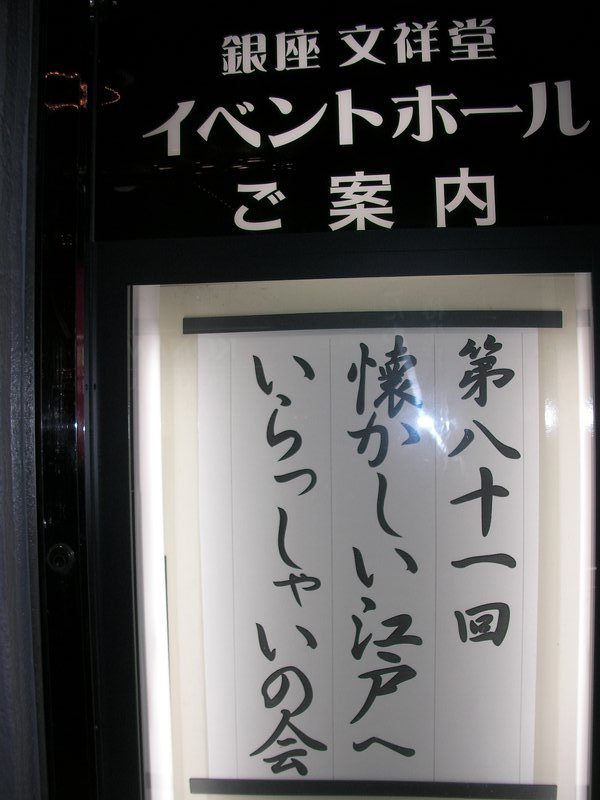 銀座 文祥堂
イベントホール
ご案内
第八十一回
懐かしい江戸へ
いらっしゃいの会